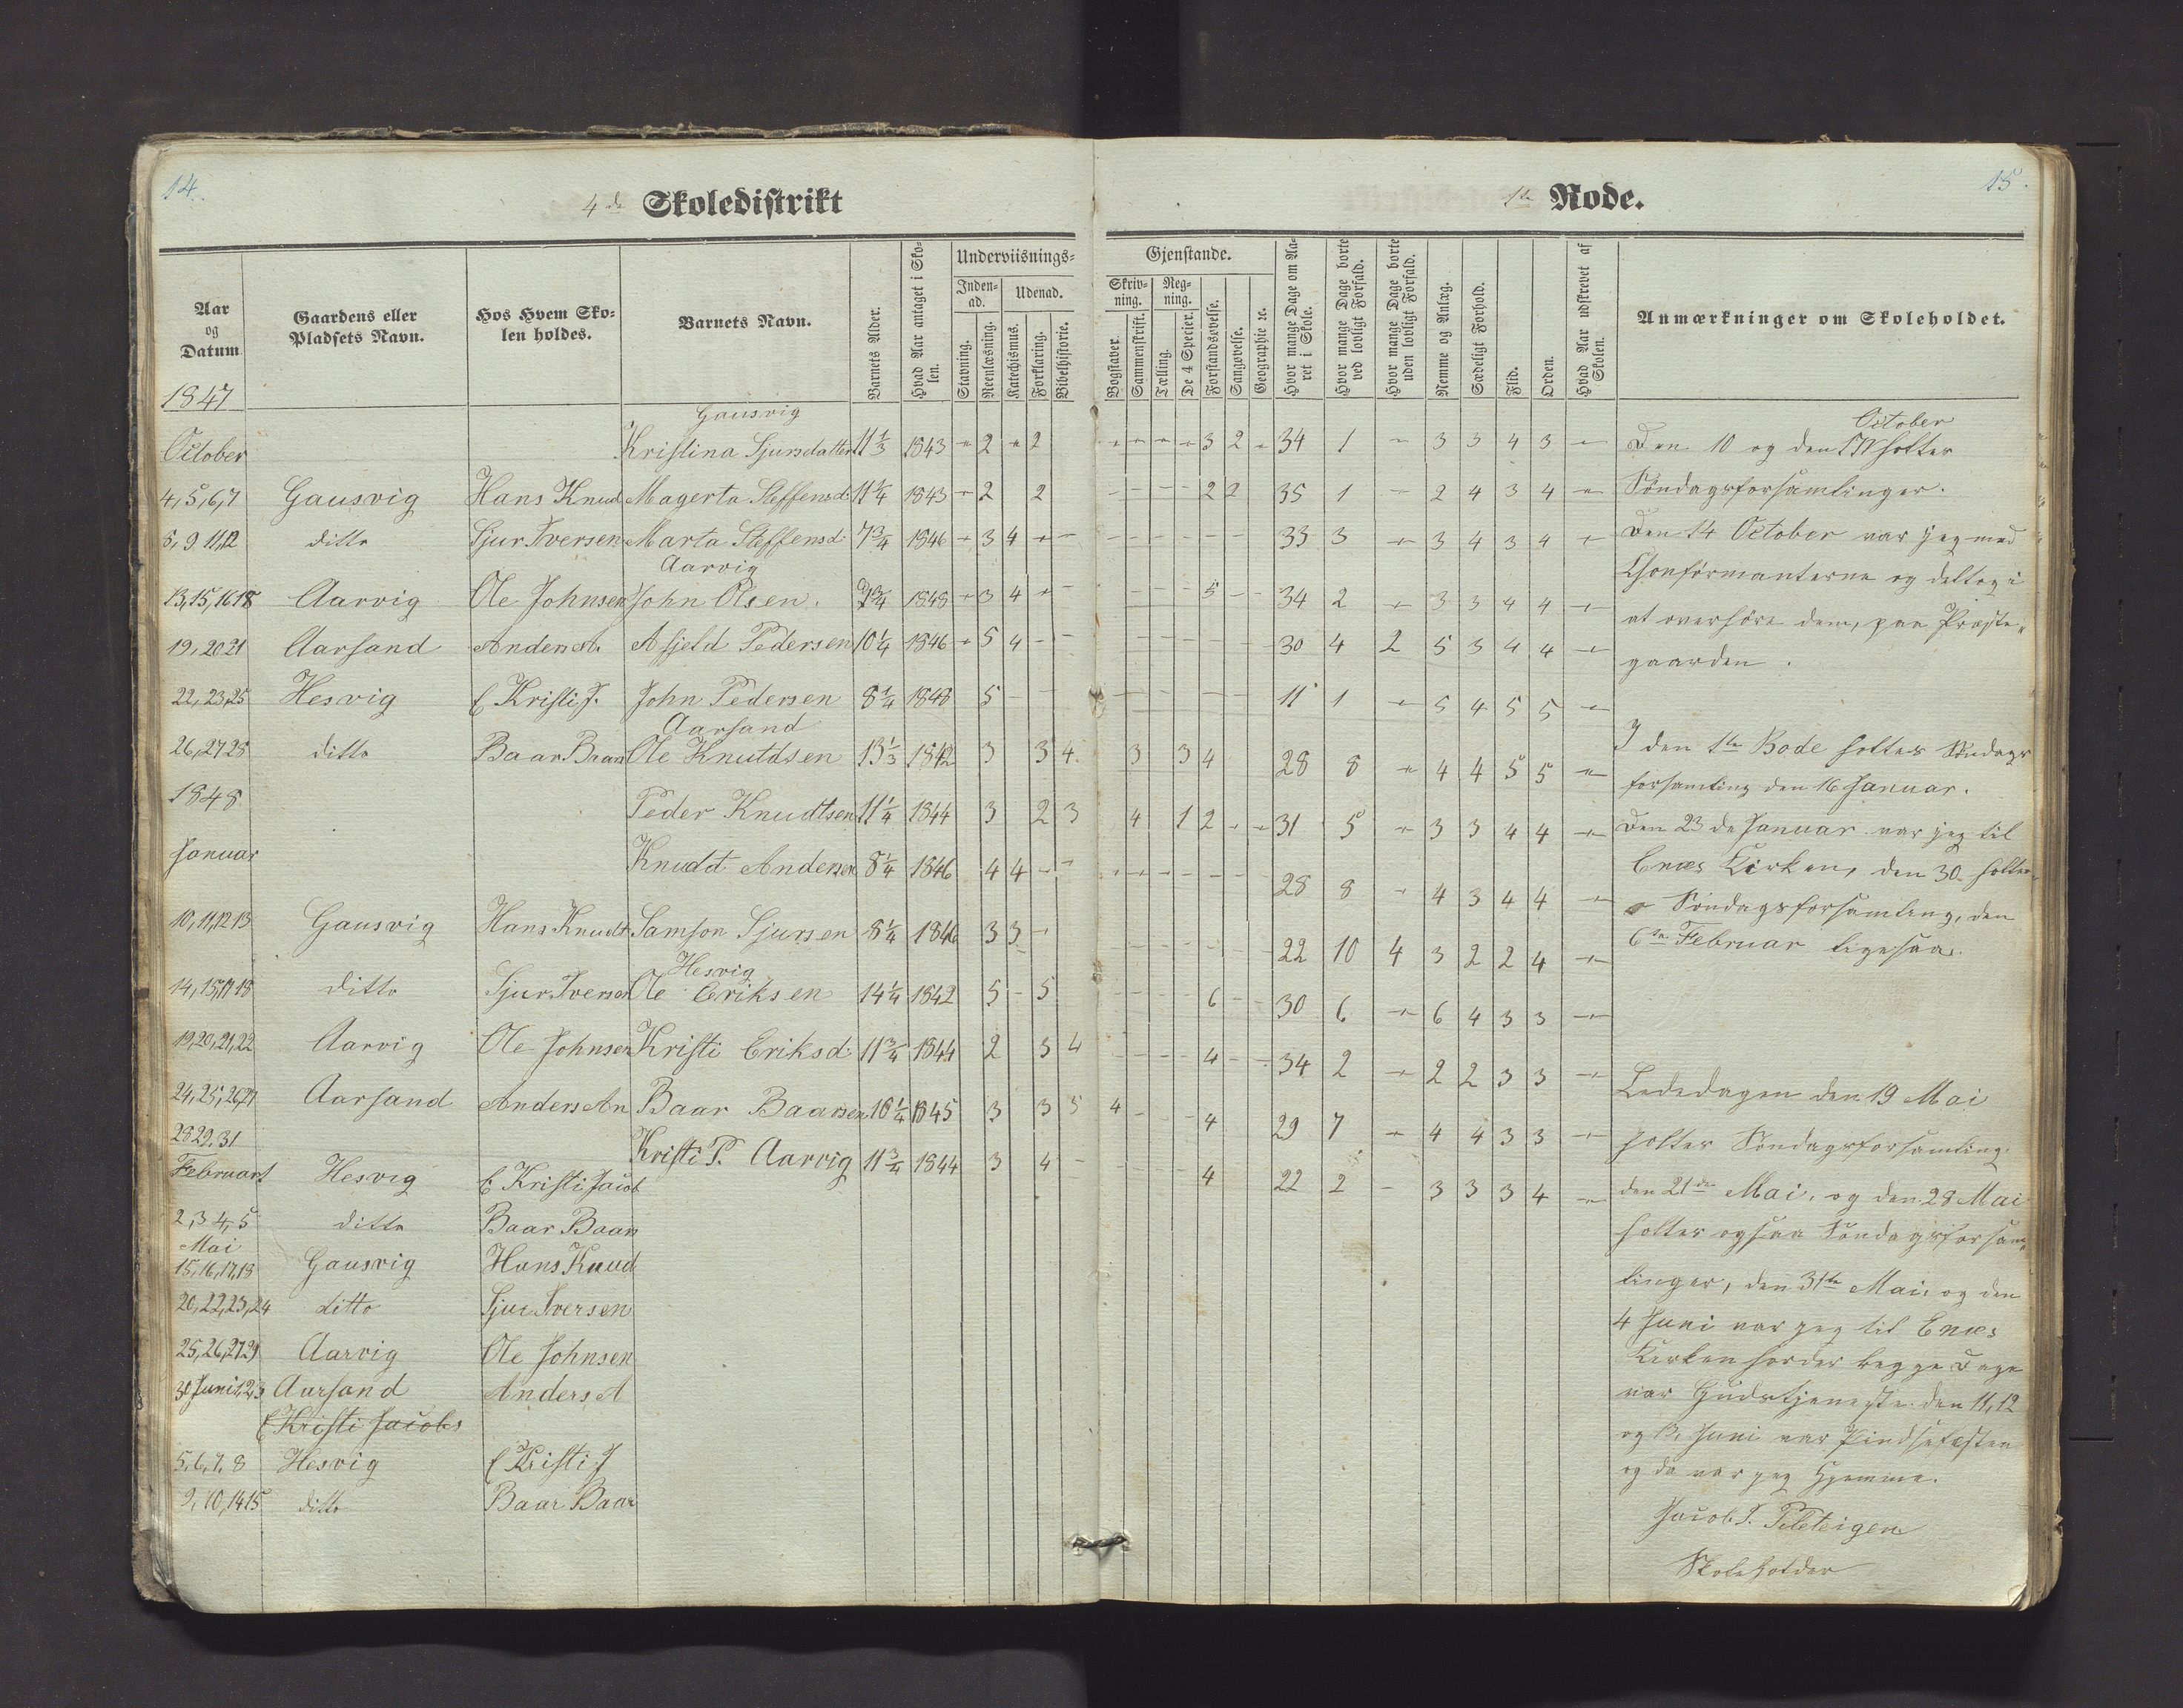 14.
4de Skoledistrikt
Aar og Datum
Gaardens eller Pladsets Navn.
Hos Hvem Skolen holdes.
Barnets Navn.
Barnets Alder.
Hvad Aar antaget i Skolen.
Underviisnings-
Inden-ad.
Udenad.
Stavning.
Reenlæsning.
Katechismus.
Forklaring.
Bibelhistorie.
1847
Gausvig
October Kristina Sjursdatter 11 1/3 1843 - 2 - 2
4,5,6,7 Gausvig Hans Knud Magerta Steffensd: 11 1/4 1843 - 2 2
8,9 11,12 ditto Sjur Iversen Marta Steffensd: 7 3/4 1846 - 3 4 - -
Aarvig
13,15,16 18 Aarvig Ole Johnsen John Olsen. 9 3/4 1848 - 3 4 - -
19,20 21 Aarsand Anders A. Asjeld Pedersen 10 1/4 1846 - 5 4 - -
22,23,25 Hesvig E Kristi J. John Pedersen 8 1/4 1848 5 - -
Aarsand
26,27 28 ditto Baar Baars Ole Knutdsen 13 1/3 1842 3 3 4
1848 Peder Knudtsen 11 1/4 1844 3 2 3
Januar Knudt Andersen 8 1/4 1846 4 4 - -
10,11,12 13 Gausvig Hans Knudt Samson Sjursen 8 1/4 1846 3 3 -
Hesvig
14,15,17 18 ditto Sjur Iversen Ole Eriksen 14 1/4 1842 5 - 5
19,20,21,22 Aarvig Ole Johnsen Kristi Eriksd: 11 3/4 1844 2 3 4
24,25,26,27 Aarsand Anders An Baar Baarsen 10 1/4 1845 3 3 5
28 29,31 Kristi P. Aarvig 11 3/4 1844 3 4 -
Februar 1 Hesvig E Kristi Jacob
2,3 4,5 ditto Baar Baars
Mai
15,16,17,18 Gausvig Hans Knud
20,22,23,24 ditto Sjur Iversen
25,26,27 29 Aarvig Ole Johnsen
30 Juni 1,2,3 Aarsand Anders A
E Kristi Jacobs
5,6,7,8 Hesvig E Kristi J
9,10,14 15 ditto Baar Baar
15.
1te Rode.
Gjenstande.
Skriv-ning.
Reg-ning.
Bogstaver.
Sammenskrift.
Tælling.
De 4 Specier.
Forstandsøvelse.
Sangøvelse.
Geographie ꝛc.
Hvor mange Dage om Aaret i Skole.
Hvor mange Dage borte ved lovligt Forfald.
Hvor mange Dage borte uden lovligt Forfald.
Nemme og Anlæg.
Sædeligt Forhold.
Flid.
Orden.
Hvad Aar udskrevet af Skolen.
Anmærkninger om Skoleholdet.
- - - - 3 2 - 34 1 - 3 3 4 3 -
- - - - 2 2 35 1 - 2 4 3 4 -
- - - - - - - 33 3 - 3 4 3 4 -
- - - 5 - - 34 2 - 3 3 4 4 -
- - - - - - 30 4 2 5 3 4 4 -
- - - - - - 11 1 - 5 4 5 5 -
3 3 4 28 8 - 4 4 5 5 -
4 1 2 - - 31 5 - 3 3 4 4 -
- - - - - - 28 8 - 4 3 4 4 -
- - - - - - 22 10 4 3 2 2 4 -
- - - - 6 - - 30 6 - 6 4 3 3 -
- - - - 4 - - 34 2 - 2 2 3 3 -
4 - - - 4 29 7 - 4 4 3 3 -
- - - - 4 22 2 - 3 3 3 4 -
October
Den 10 og den 17 holtes
Söndagsforsamlinger.
Den 14 October var jeg med
Chonförmanterne og deltog i
at overhöre dem, paa Præste-
gaarden.
I den 1te Rode holtes Söndags
forsamling den 16 Januar.
Den 23 de Januar var jeg til
Enæs Kirken, den 30 holtes
Söndagsforsamling, den
6te Februar ligesaa.
Lededagen den 19 Mai
holtes Söndagsforsamling.
den 21de Mai, og den 28 Mai
holtes ogsaa Söndagsforsam-
linger, den 31te Mai og den
4 Juni var jeg til Enæs
Kirken hvorder begge Dage
var Gudstjeneste. den 11, 12
og 13 Juni var Pindsefesten
og da var jeg Hjemme.
Jacob J. Teleteigen
Skoleholder